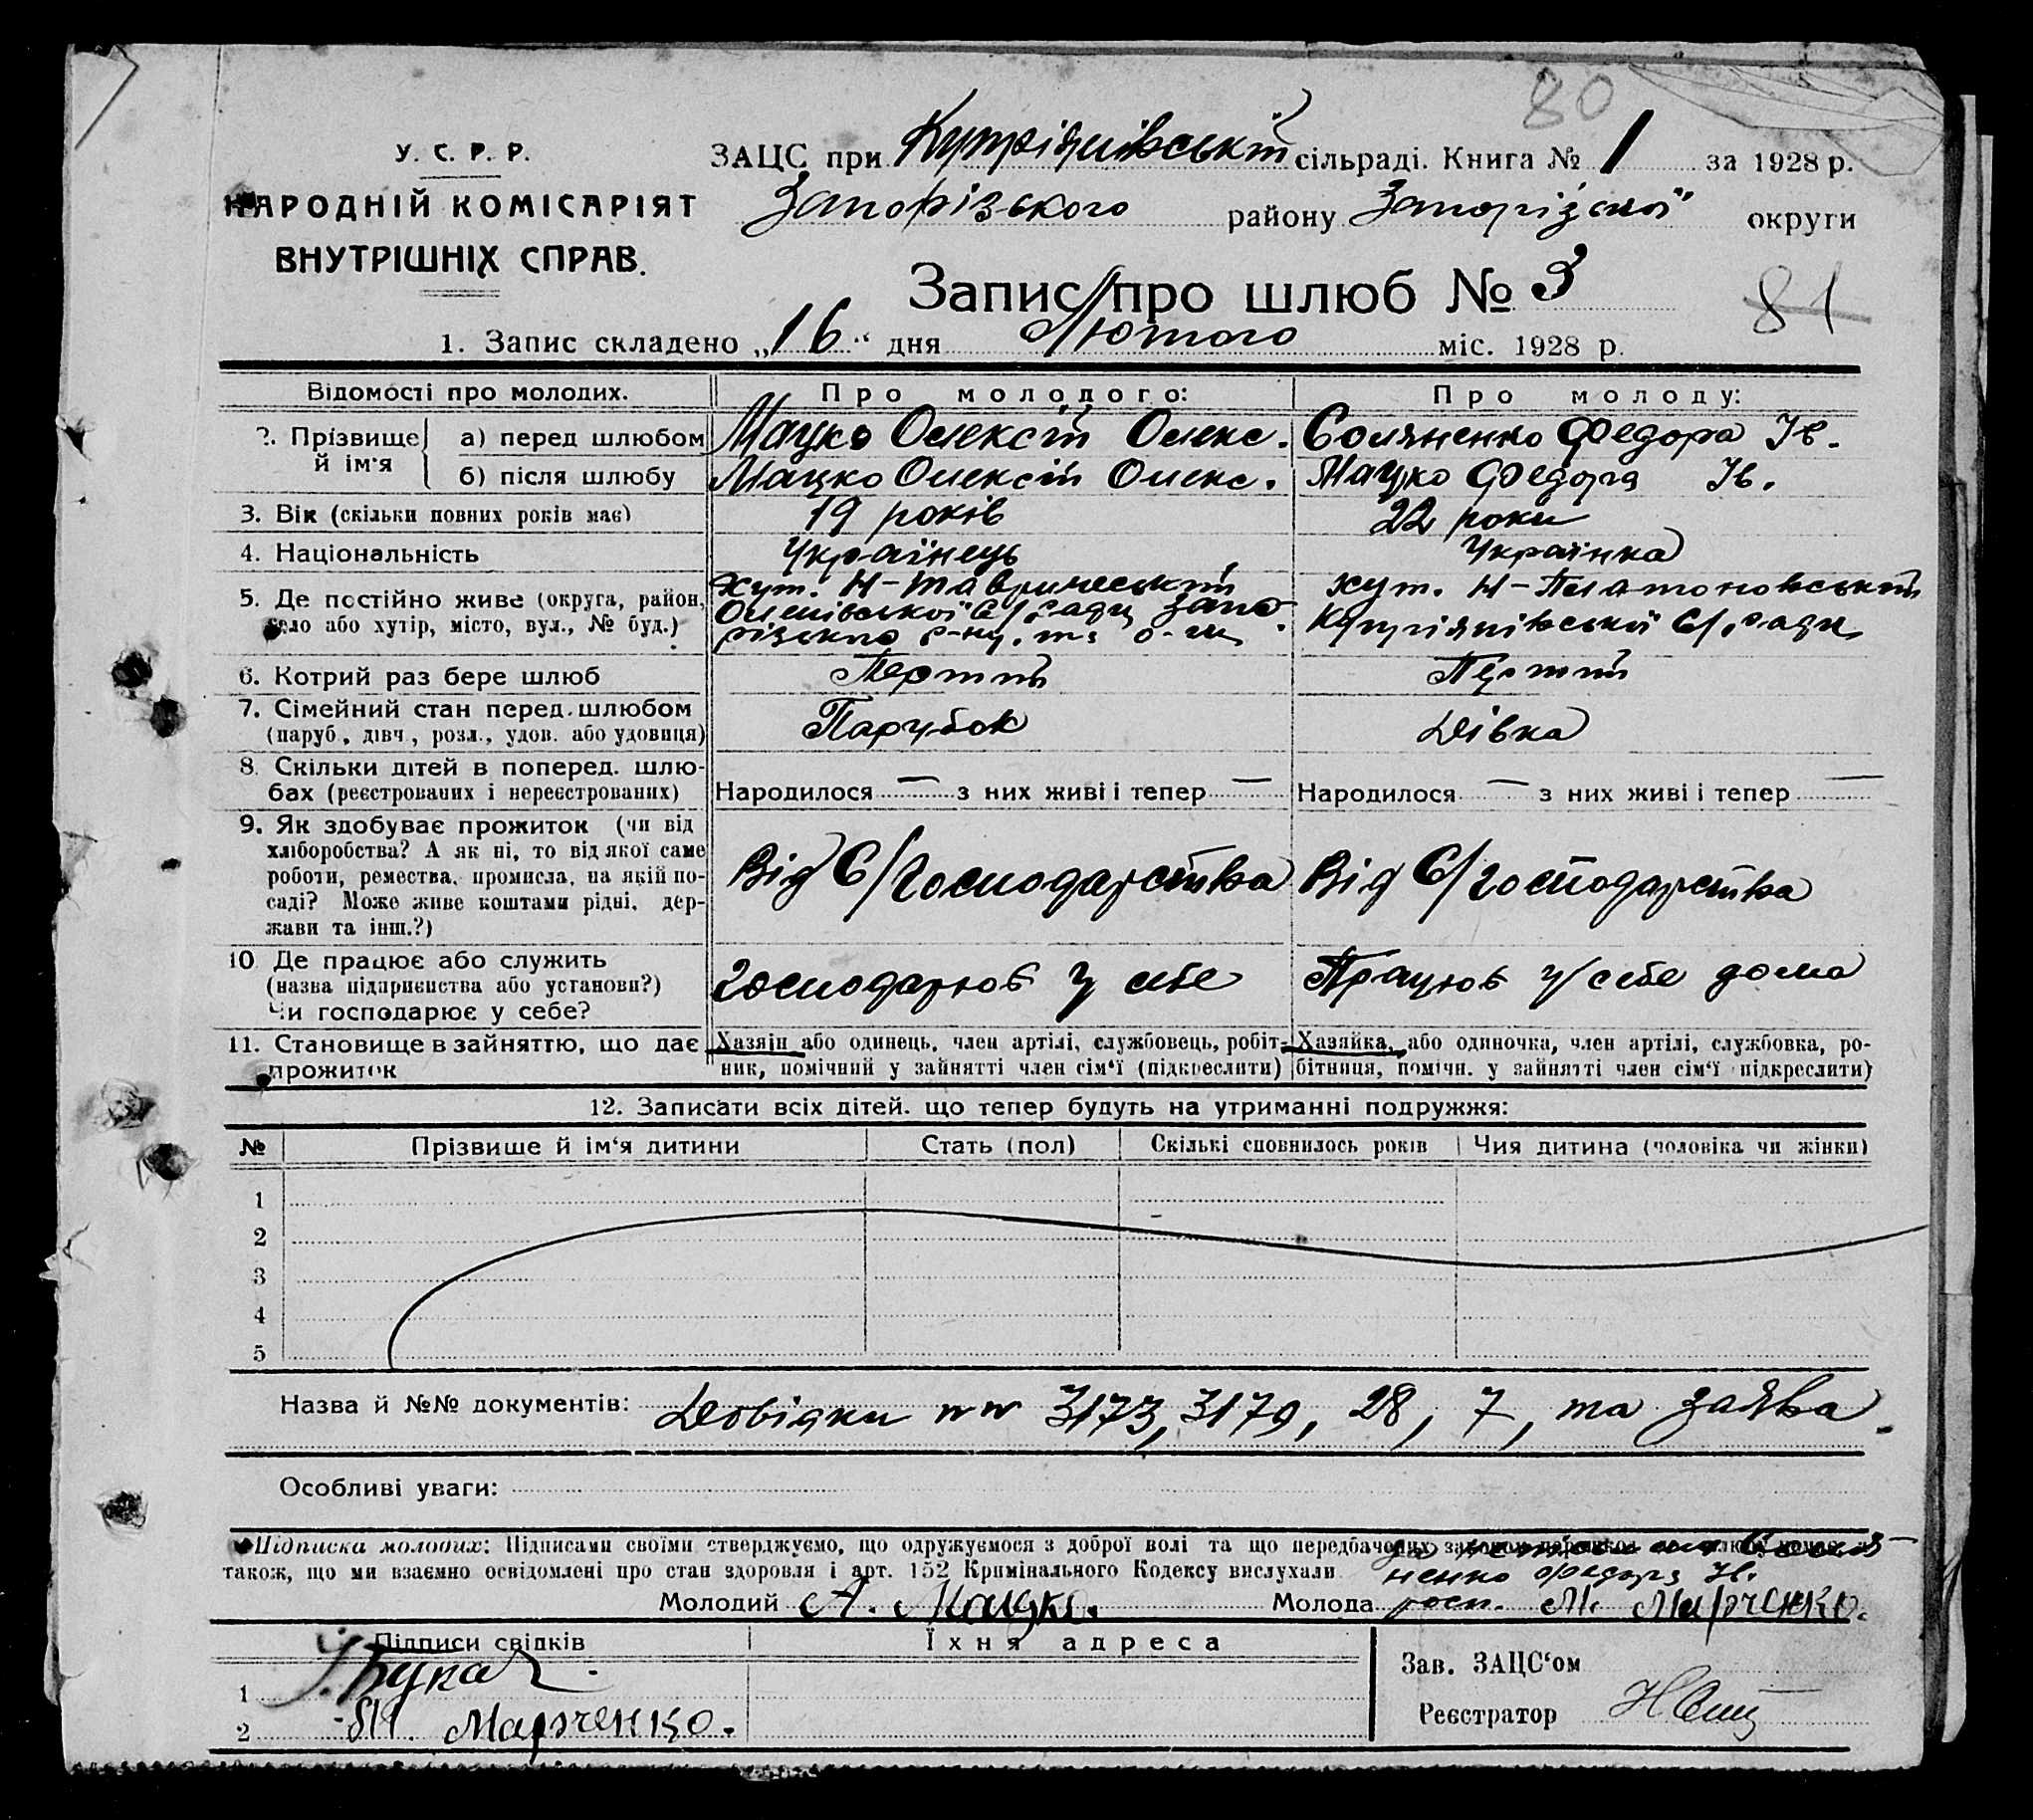 80
У. С. Р. Р.
НАРОДНІЙ КОМІСАРІЯТ
ВНУТРІШНІХ СПРАВ.
ЗАЦС при Купріянівській сільраді. Книга № 1 за 1928 р.
Запорізького району Запорізької округи
Запис про шлюб № 3
81
1. Запис складено „16“ дня Лютого міс. 1928 р.
Відомості про молодих. Про молодого: Про молоду:
2. Прізвище й ім'я а) перед шлюбом Мацко Олексій Олекс. Соляненко Федора Ів.
б) після шлюбу Мацко Олексій Олекс. Мацко Федора Ів.
3. Вік (скільки повних років має) 19 років 22 роки
4. Національність Українець Українка
5. Де постійно живе (округа, район, село або хутір, місто, вул., № буд.)
хут. Н-Тавричеський
С/ради Запо-
різького р-ну, та о-ги
хут. Н-Платоновський
Купріянівської С/ради
6. Котрий раз бере шлюб Перший Перший
7. Сімейний стан перед шлюбом Парубок Дівка
(паруб., дівч., розл., удов. або удовиця)
8. Скільки дітей в поперед. шлю-
бах (реєстрованих і нереєстрованих) Народилося — з них живі і тепер — Народилося — з них живі і тепер —
9. Як здобуває прожиток (чи від
хліборобства? А як ні, то від якої саме
роботи, ремества, промисла, на якій по-
саді? Може живе коштами рідні, дер-
жави та інш.?)
Від С/господарства Від С/господарства
10 Де працює або служить
(назва підприємства або установи?)
Чи господарює у себе?
господарює у себе Працює у себе дома
11. Становище в зайняттю, що дає
прожиток
Хазяін або одинець, член артілі, службовець, робіт-
ник, помічний у зайнятті член сім'ї (підкреслити)
Хазяйка, або одиночка, член артілі, службовка, ро-
бітниця, помічн. у зайнятті член сім'ї підкреслити)
12. Записати всіх дітей. що тепер будуть на утриманні подружжя:
№ Прізвище й ім'я дитини Стать (пол) Скількі сповнилось років Чия дитина (чоловіка чи жінки)
1
2
3
4
5
Назва й №№ документів: Довідки №№ 3173, 3179, 28, 7, та заява.
Особливі уваги:
Підписка молодих: Підписами своїми стверджуємо, що одружуємося з доброї волі та що передбачених законом
також, що ми взаємно освідомлені про стан здоровля і арт. 152 Кримінального Кодексу вислухали
за Соля-
ненко Федора Ів.
Молодий А. Мацко. Молода росп. М. Марченко.
Підписи свідків Їхня адреса
1
2 М. Марченко.
Зав. ЗАЦС'ом
Реєстратор